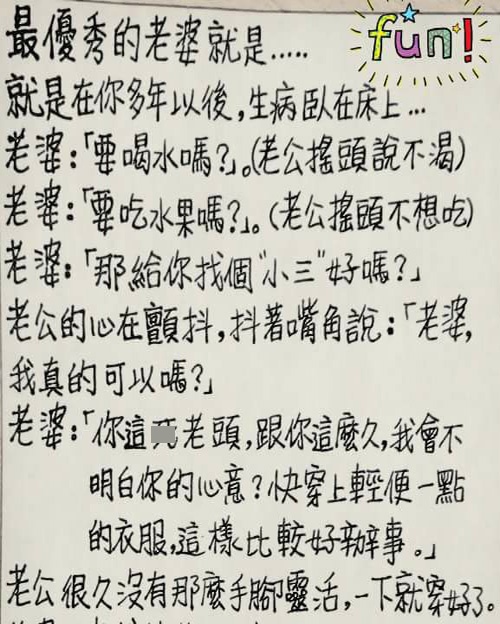 最優秀的老婆就是.....
fun!
就是在你多年以後,生病臥在床上...
老婆:「要喝水嗎?」。(老公搖頭說不渴)
老婆:「要吃水果嗎?」。(老公搖頭不想吃)
老婆:「那給你找個"小三"好嗎?」
老公的心在顫抖,抖著嘴角說:「老婆,
我真的可以嗎?」
老婆:「你這老頭,跟你這麼久,我會不
明白你的心意?快穿上輕便一點
的衣服,這樣比較好辦事。」
老公很久沒有那麼手腳靈活,一下就穿好了。